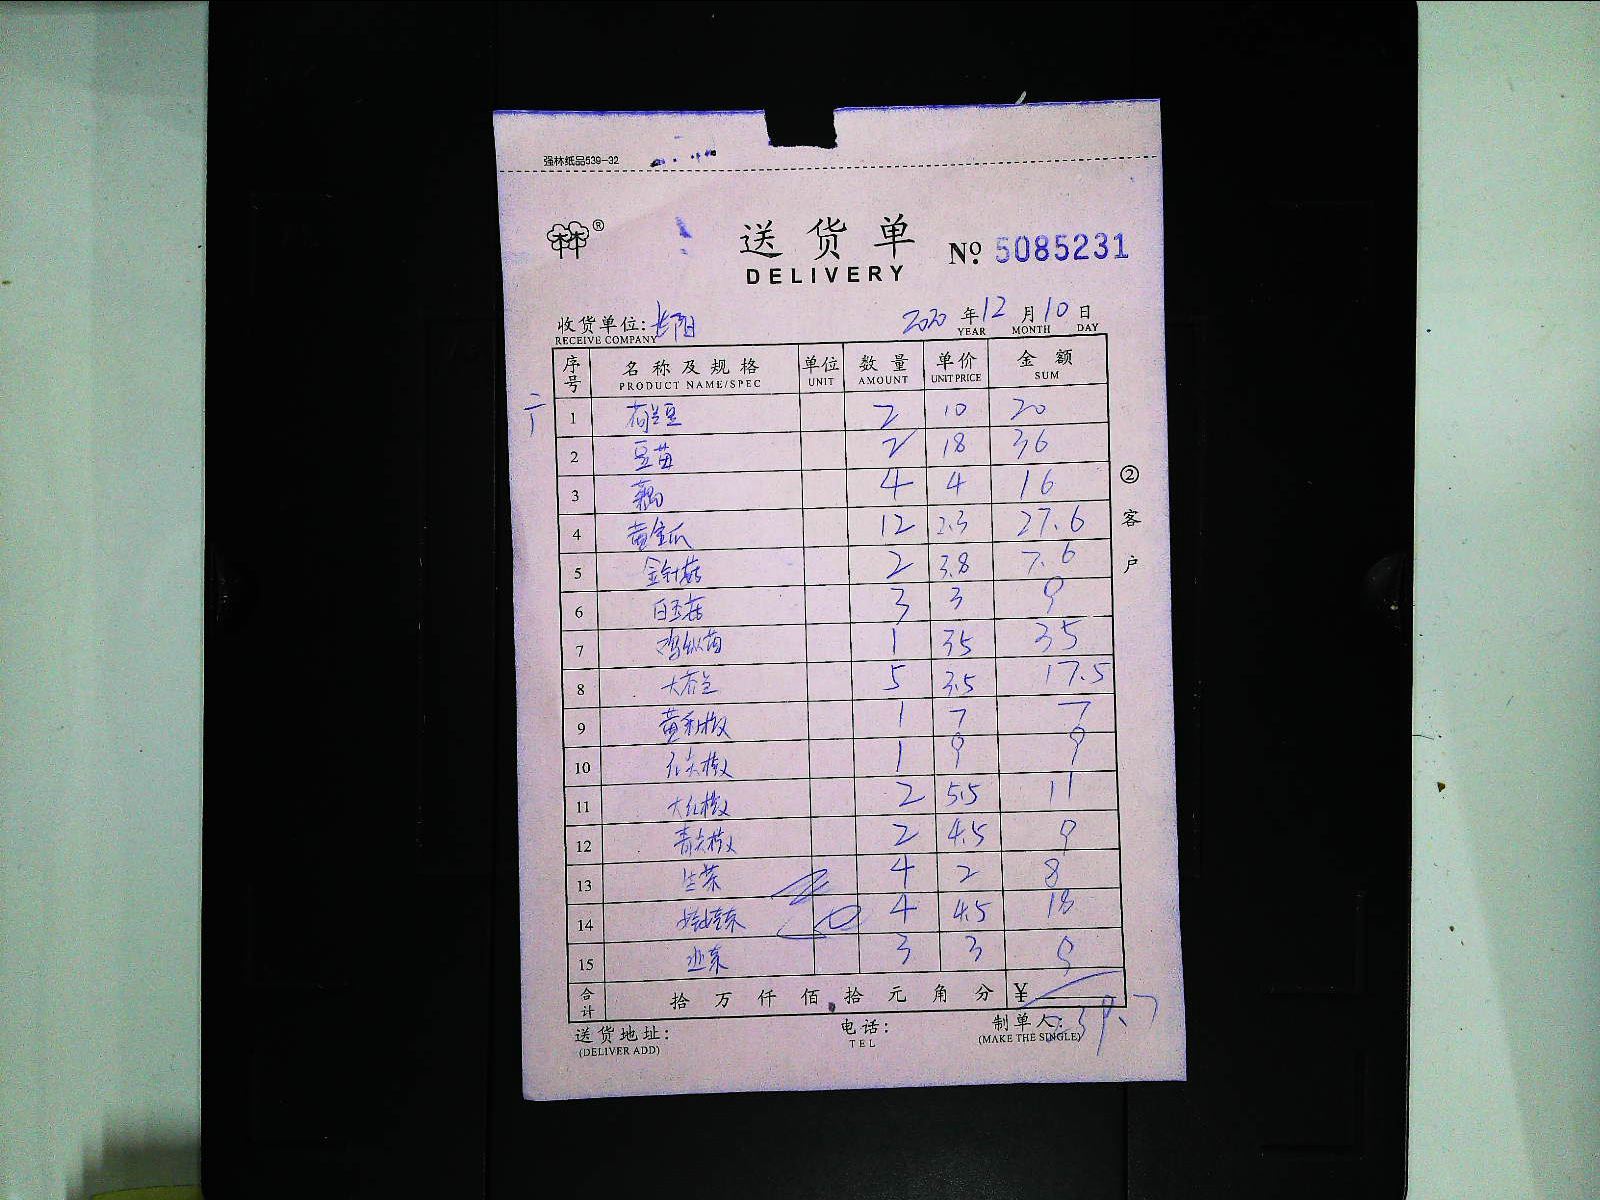 强林纸品539-32
林®
送货单 No. 5085231
DELIVERY
收货单位:长阳 2020年12月10日
RECEIVE COMPANY YEAR MONTH DAY
序号 名称及规格 单位 数量 单价 金额
PRODUCT NAME/SPEC UNIT AMOUNT UNIT PRICE SUM
1 荷兰豆 2 10 20
2 豆苗 2 18 36
3 藕 4 4 16
4 黄金瓜 12 2.3 27.6
5 金针菇 2 3.8 7.6
6 白玉菇 3 3 9
7 鸡纵菌 1 35 35
8 大芥兰 5 3.5 17.5
9 黄彩椒 1 7 7
10 红尖椒 1 9 9
11 大红椒 2 5.5 11
12 青尖椒 2 4.5 9
13 生菜 4 2 8
14 娃娃菜 4 4.5 18
15 韭菜 3 3 9
合计 拾万仟佰拾元角分 ¥
239.7
②客户
送货地址: 电话: 制单人:
(DELIVER ADD) TEL (MAKE THE SINGLE)